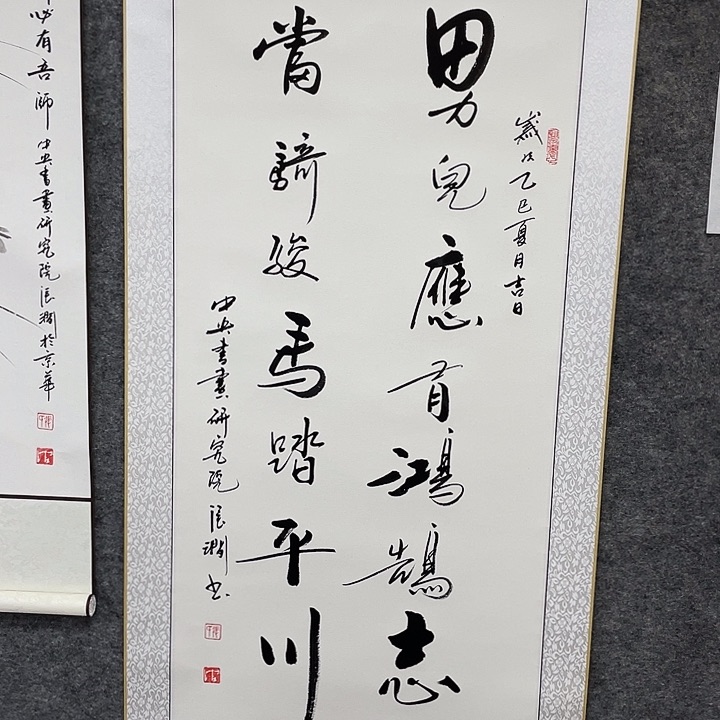 歲次乙巳夏月吉日
男兒應有鴻鵠志
當騎駿馬踏平川
中央書畫研究院張潤書
必有吾師
中央書畫研究院張潤於京華